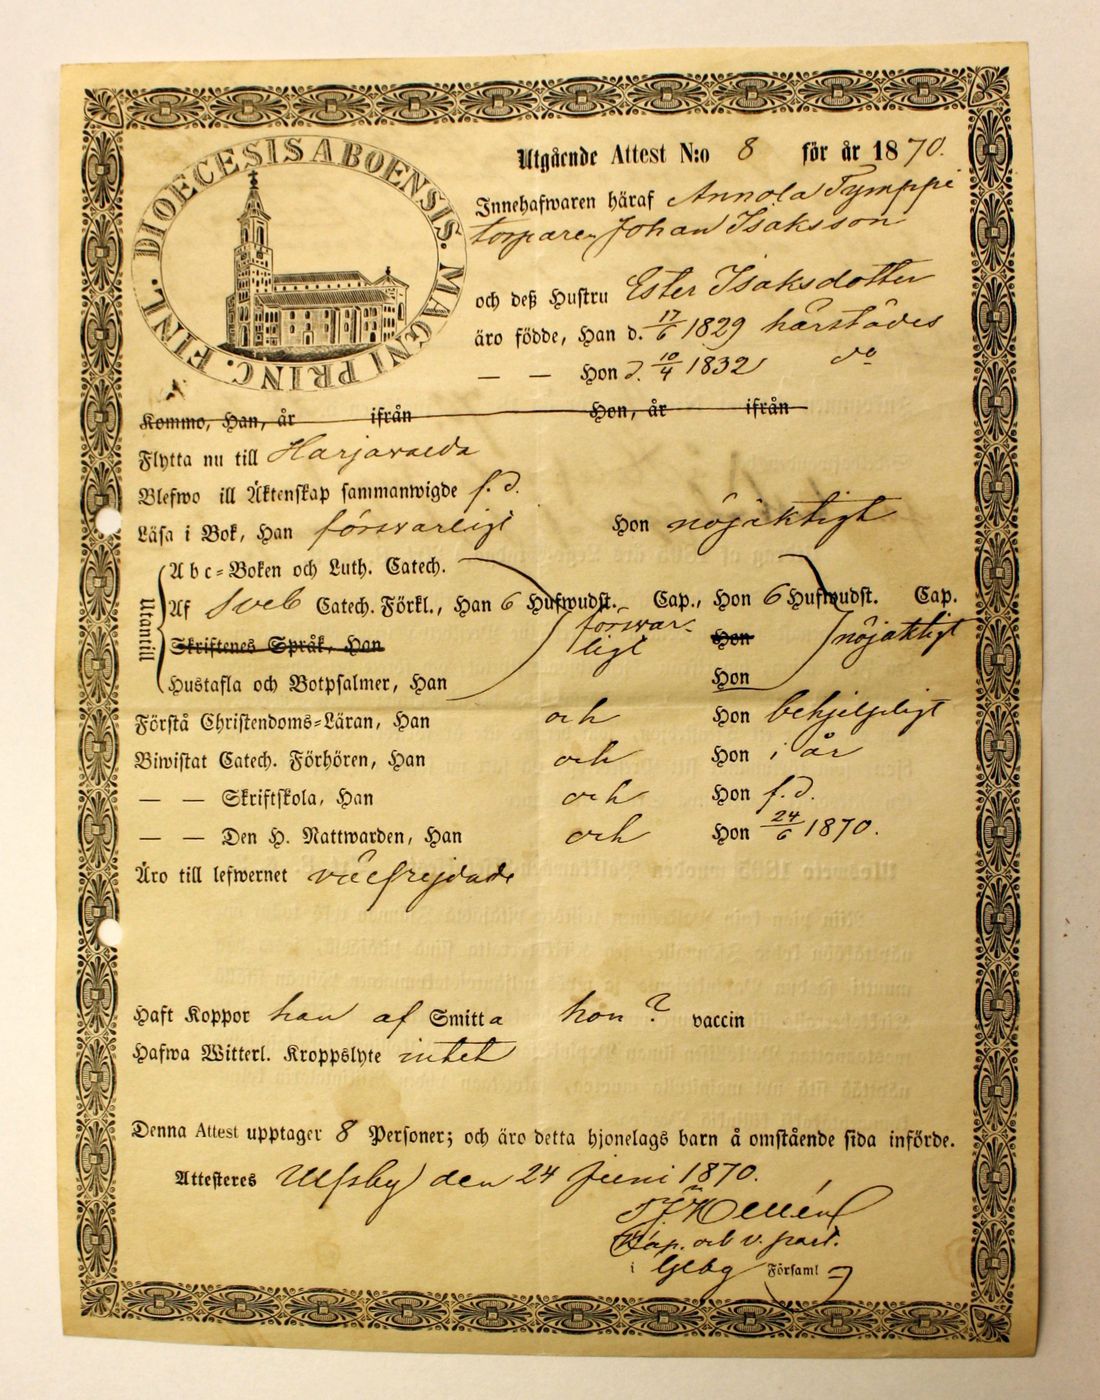 DIOECESIS ABOENSIS. MAGNI PRINC. FINL.
Utgående Attest N:o 8 för år 1870.
Innehafwaren häraf Annola Tymppi
torparen Johan Isaksson
och deß Hustru Ester Isaksdotter
äro födde, Han d. 17/6 1829 härstädes
— — Hon d. 10/4 1832 do
Komne, Han, år ifrån Hon, år ifrån
Flytta nu till Harjavalda
Blefwo ill Äktenskap sammanwigde f. d.
Läsa i Bok, Han försvarligt Hon nöjaktigt
Utantill
Abc=Boken och Luth. Catech.
Af Sveb Catech. Förkl., Han 6 Hufwudst. Cap., Hon 6 Hufwudst. Cap.
Skriftenes Språk, Han försvarligt Hon nöjaktigt
Hustafla och Botpsalmer, Han Hon
Förstå Christendoms=Läran, Han och Hon behjelpligt
Biwistat Catech. Förhören, Han och Hon i år
— — Skriftskola, Han och Hon f. d.
— — Den H. Nattwarden, Han och Hon 24/6 1870.
Äro till lefwernet välfrejdade
Haft Koppor han af Smitta hon ? vaccin
Hafwa Witterl. Kroppslyte intet
Denna Attest upptager 8 Personer; och äro detta hjonelags barn å omstående sida införde.
Attesteres Ulfsby den 24 Juni 1870.
Kap. och v. past.
i Glbg Församl